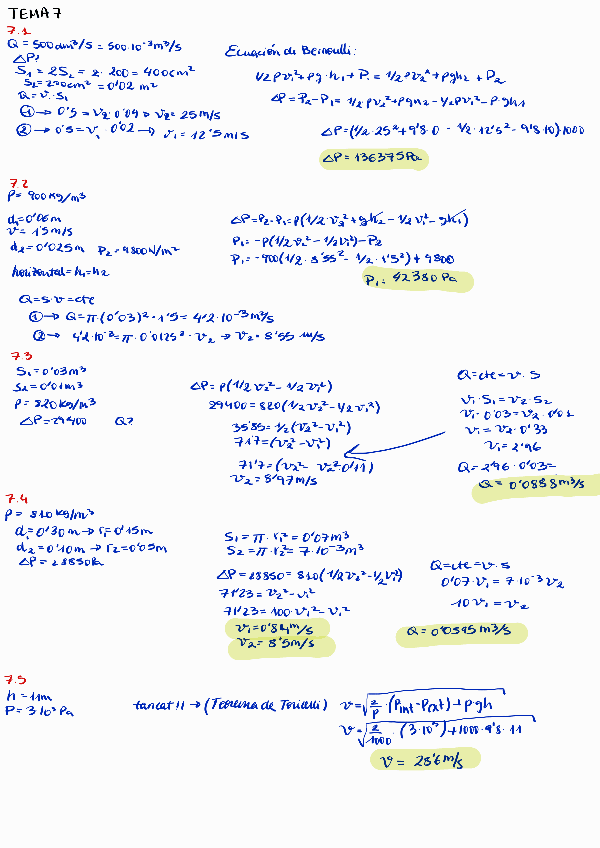 TEMA 7
7.1
Q = 500dm³/s = 500·10⁻³m³/s
△P?
S₁ = 2S₂ = 2·200 = 400cm²
S₂ = 200cm² = 0'02 m²
Q = v·S₁
① → 0'5 = v₂·0'04 → v₂ = 25m/s
② → 0'5 = v₁·0'02 → v₁ = 12'5m/s
Ecuación de Bernoulli:
1/2ρv₁² + ρg·h₁ + P₁ = 1/2ρv₂² + ρgh₂ + P₂
△P = P₂-P₁ = 1/2ρv₂² + ρgh₂ - 1/2ρv₁² - ρ·gh₁
△P = (1/2·25² + 9'8·0 - 1/2·12'5² - 9'8·10)1000
△P = 136375Pa
7.2
ρ = 900kg/m³
d₁ = 0'06m
v = 1'5m/s
d₂ = 0'025m P₂ = 9800N/m²
horizontal = h₁ = h₂
Q = S·v = cte
① → Q = π·(0'03)²·1'5 = 4'2·10⁻³m³/s
② → 4'2·10⁻³ = π·0'0125²·v₂ → v₂ = 8'55 m/s
△P = P₂-P₁ = ρ(1/2·v₂² + gh₂ - 1/2v₁² - gh₁)
P₁ = -ρ(1/2v₂² - 1/2v₁²) - P₂
P₁ = -900(1/2·8'55² - 1/2·1'5²) + 9800
P₁ = 42380Pa
7.3
S₁ = 0'03m³
S₂ = 0'01m³
ρ = 820kg/m³
△P = 29400 Q?
△P = ρ(1/2v₂² - 1/2v₁²)
29400 = 820(1/2v₂² - 1/2v₁²)
35'85 = 1/2(v₂² - v₁²)
71'7 = (v₂² - v₁²)
71'7 = (v₂² - v₂²·0'11)
v₂ = 8'97m/s
Q = cte = v·S
v₁·S₁ = v₂·S₂
v₁·0'03 = v₂·0'01
v₁ = v₂·0'33
v₁ = 2'96
Q = 2'96·0'03 =
Q = 0'0888m³/s
7.4
ρ = 810kg/m³
d₁ = 0'30m → r₁ = 0'15m
d₂ = 0'10m → r₂ = 0'05m
△P = 28850Pa
S₁ = π·r₁² = 0'07m³
S₂ = π·r₂² = 7·10⁻³m³
△P = 28850 = 810(1/2v₂² - 1/2v₁²)
71'23 = v₂² - v₁²
71'23 = 100·v₁² - v₁²
v₁ = 0'84m/s
v₂ = 8'5m/s
Q = cte = v·S
0'07·v₁ = 7·10⁻³v₂
10v₁ = v₂
Q = 0'0595m³/s
7.5
h = 11m
P = 3·10⁵Pa
tancat!! → (Teorema de Torricelli)
v = √2/ρ·(Pint - Pext) + ρ·gh
v = √2/1000·(3·10⁵) + 1000·9'8·11
v = 28'6m/s